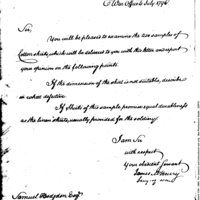 War Office 6 July 1796
Sir,
You will be pleased to examine the two samples of
Cotton shirts, which will be delivered to you with this letter and report
your opinion on the following points.
If the dimension of the shirt is not suitable, describe
in what defective.
If shirts of this sample promise equal durableness
as the linen shirts, usually provided for the soldiery.
I am Sir
with respect
Your obedient servant
James McHenry
Samuel Hodgdon Esqr.